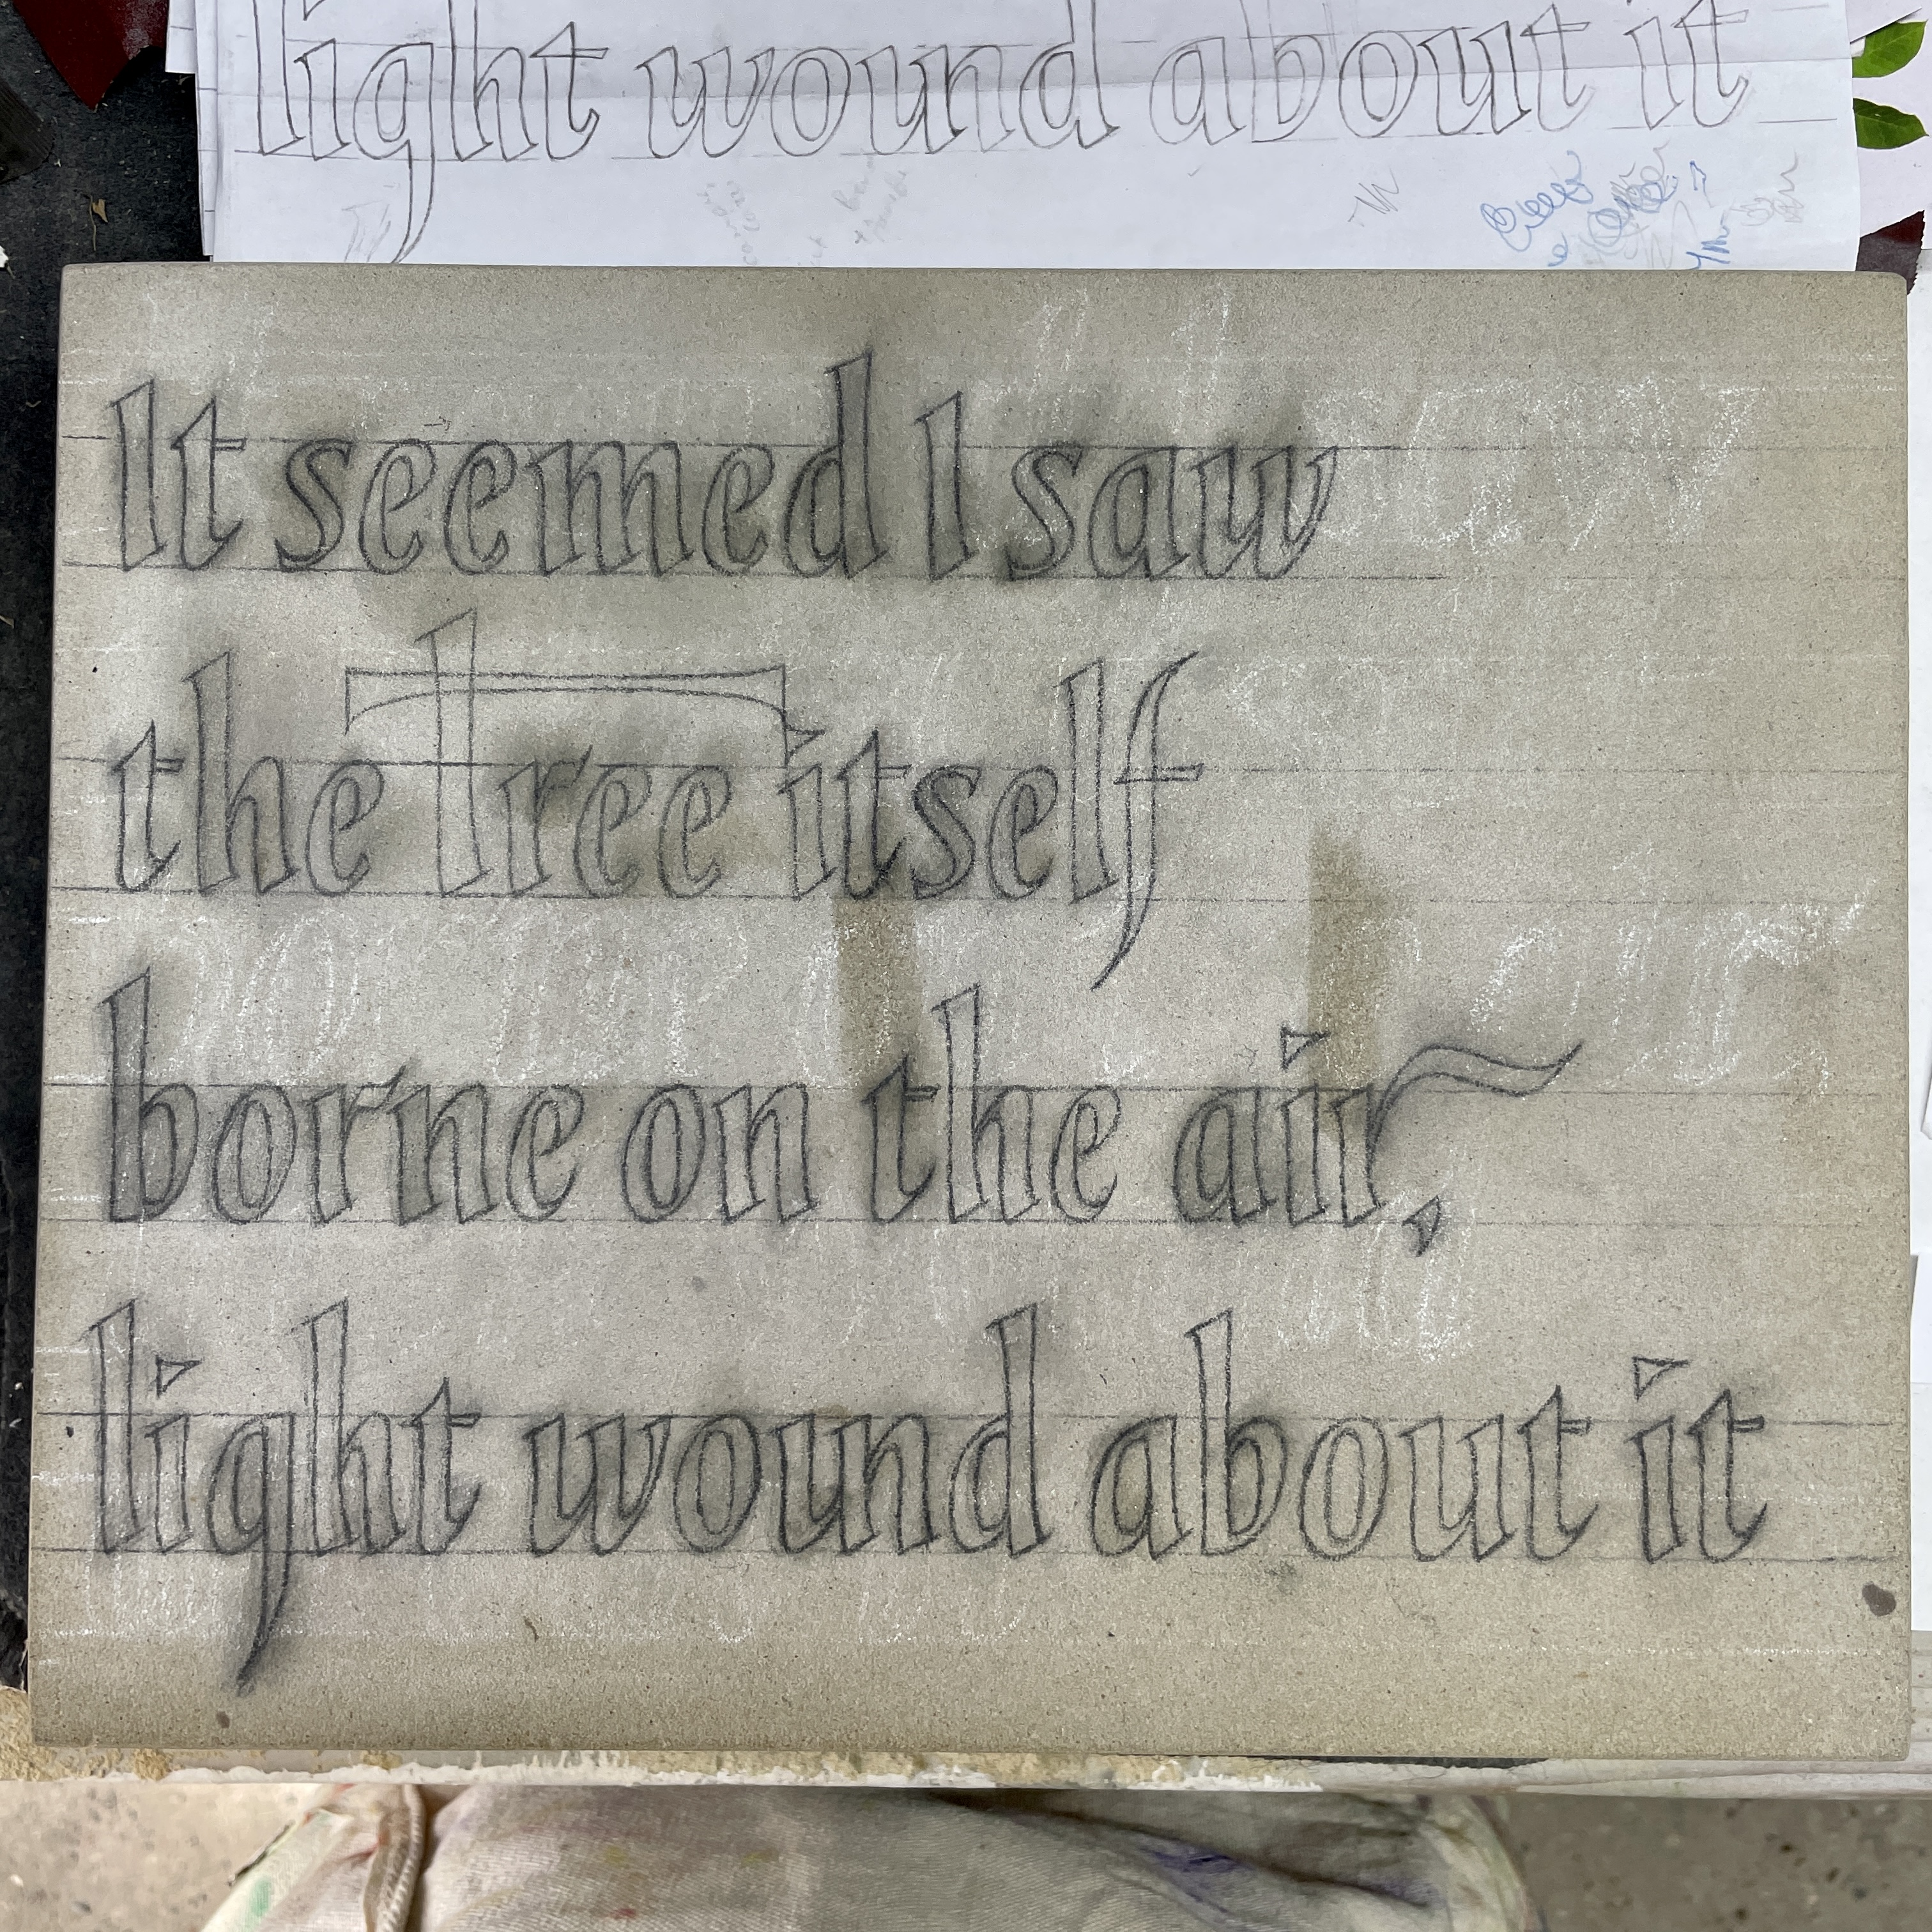 light wound about it
It seemed I saw
the Tree itself
borne on the air,
light wound about it